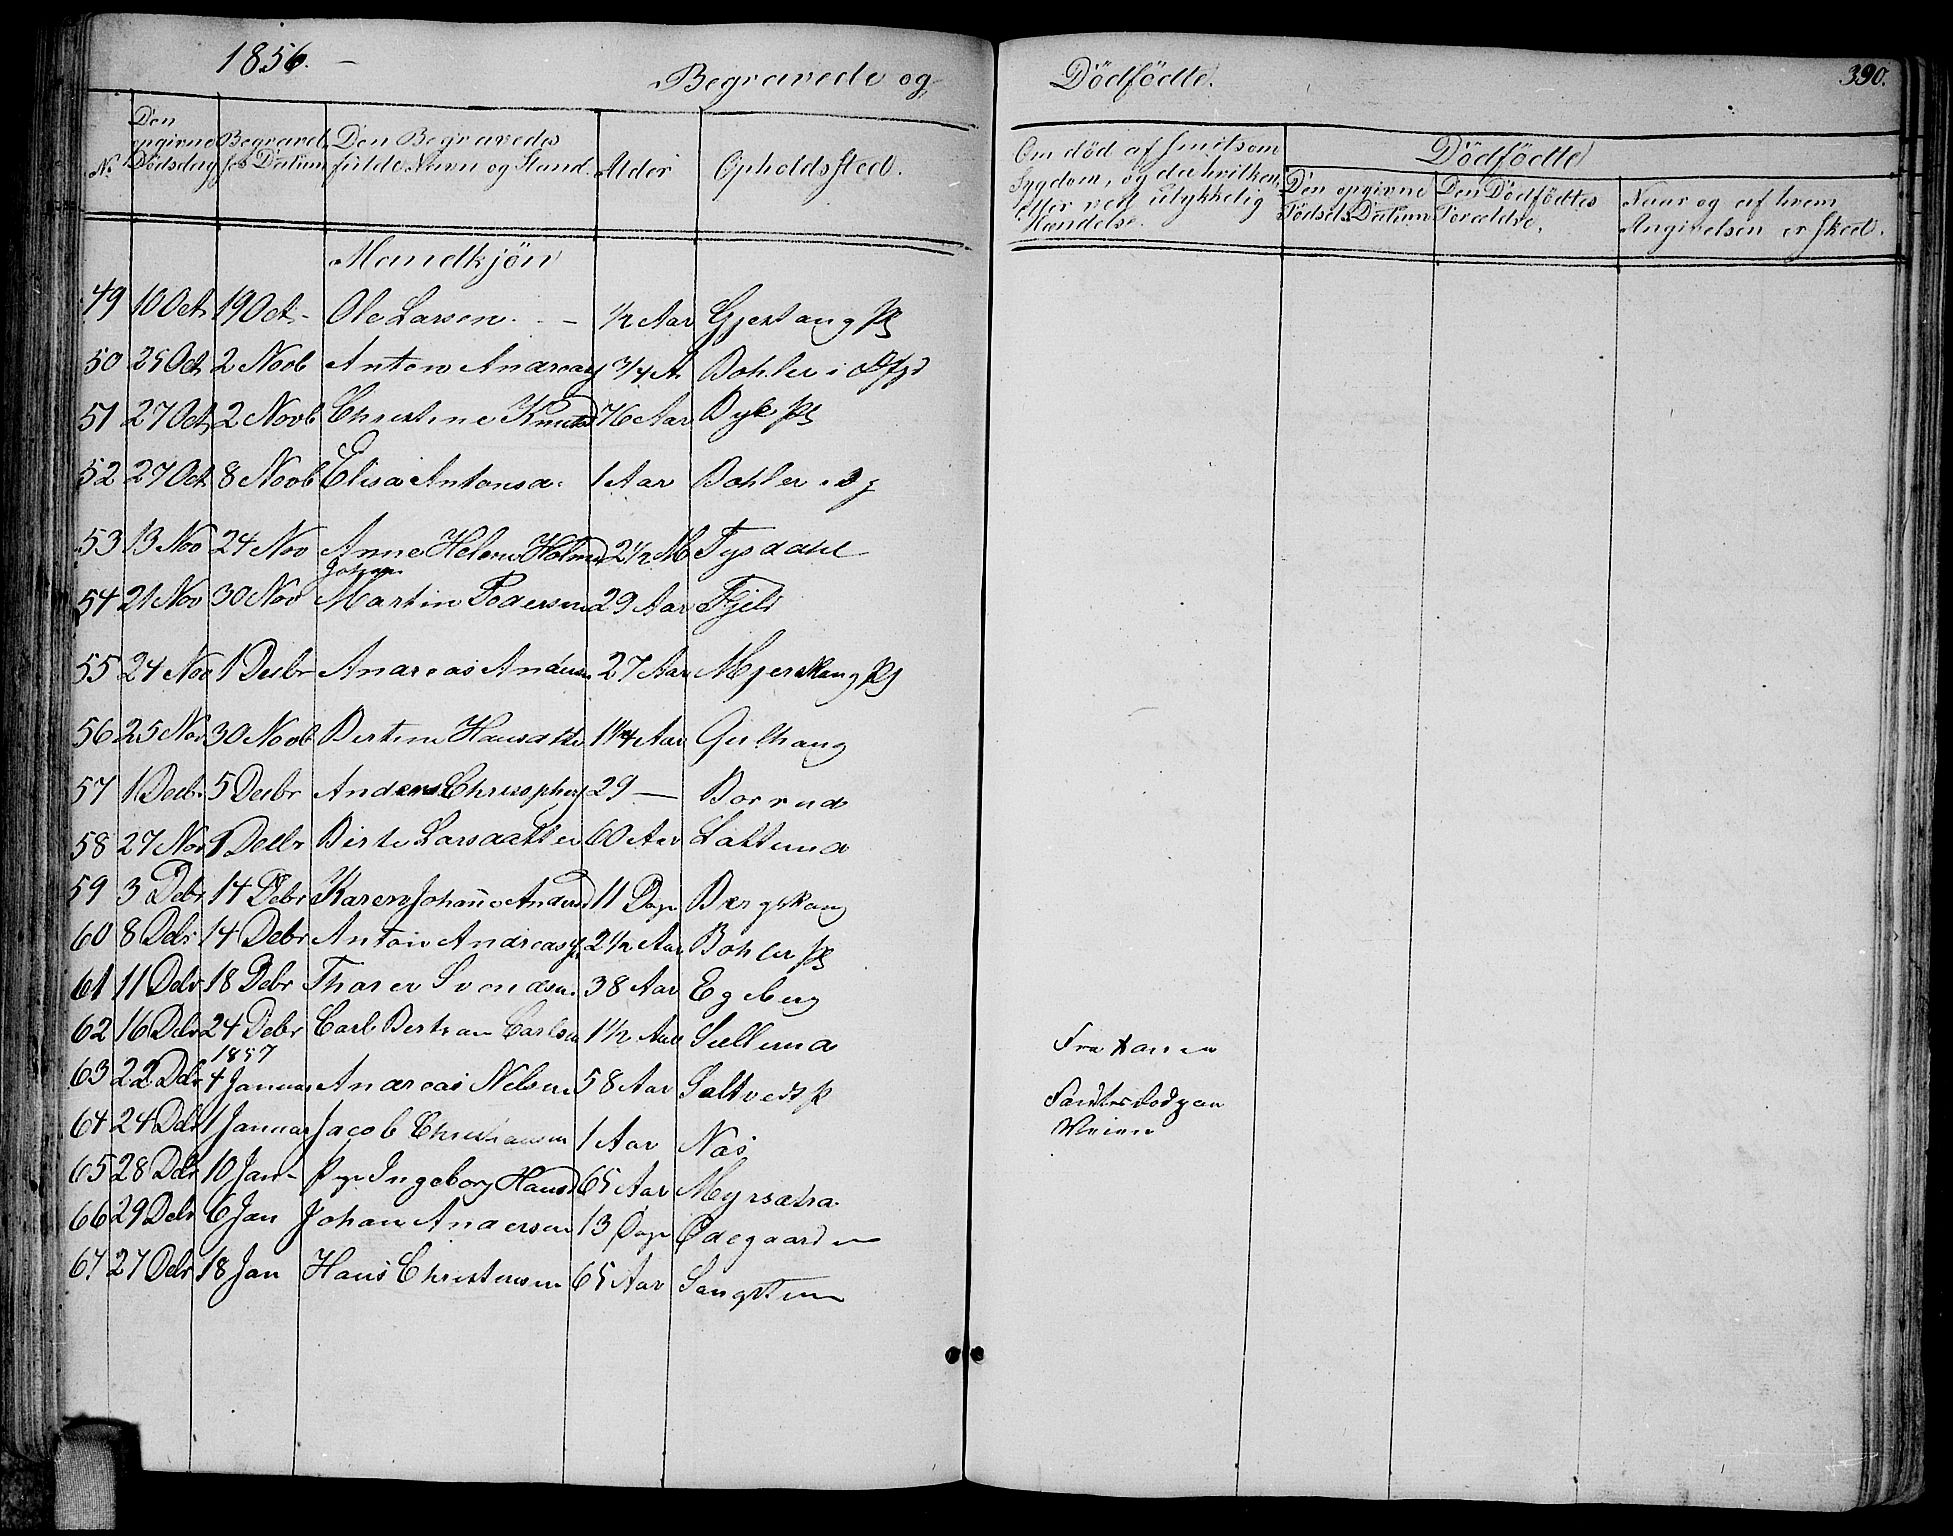 1856. Begravede og Dödfödte. 390.
No. Den opgivne Dödsdag Begravelses Datum Den Begravedes fulde Navn og Stand. Alder Opholdssted. Om död af smitsom Sygdom, og da hvilken, eller ved ulykkelig Hændelse. Dödfödte Den opgivne Födsels Datum Den Dödfödtes Forældre. Naar og af hvem Angivelsen er skeed.
Mandkjön
49 10 Oct 19 Oct Ole Larsen 1/2 Aar
50 25 Oct 2 Novb Anton Andreas 3/4 A Bohler i
51 27 Oct 2 Novb Christine Knutsd 76 Aar
52 27 Oct 8 Novb Elisa Antonsd. 1 Aar Bohler
53 13 Nov 24 Nov Anne Helene 2 1/2 M Tysdahl
54 21 Nov 30 Nov Johan Martin Pedersen 29 Aar Fjeld
55 24 Nov 1 Decbr Andreas Andersen 27 Aar
56 25 Nov 30 Novb Bertine Hansdtter 1 1/4 Aar Gulhaug
57 1 Decb. 5 Decbr Anders 29 — Borrud
58 27 Nov 1 Decbr Birte Larsdatter 60 Aar
59 3 Debr 14 Debr Karen Johanne Andersd 11 Dage Berghaug
60 8 Debr 14 Debr Anton Andreas 2 1/2 Aar Bohler
61 11 Debr 18 Debr Tharer Svendsen 38 Aar Egeberg
62 16 Debr 24 Debr Carl Bertran Carlsen 1 1/2 Aar
63 22 Debr 1857 4 Januar Andreas Nelsen 58 Aar
64 24 Debr 1 Januar Jacob Christiansen 1 Aar Næs
65 28 Debr 10 Jan Ingeborg Hansd 65 Aar Myrsætra
66 29 Debr 6 Jan Johan Andersen 13 Dage Ødegaarden
67 27 Debr 18 Jan Hans Christensen 65 Aar
Veien